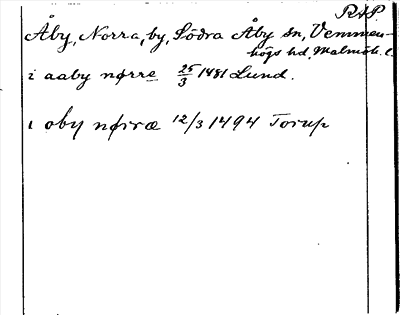 RAP.
Åby, Norra, by, Södra Åby sn, Vemmen-
högs hd, Malmöh. l.
i aaby nørre 25/3 1481 Lund.
i oby nørræ 12/3 1494 Torup